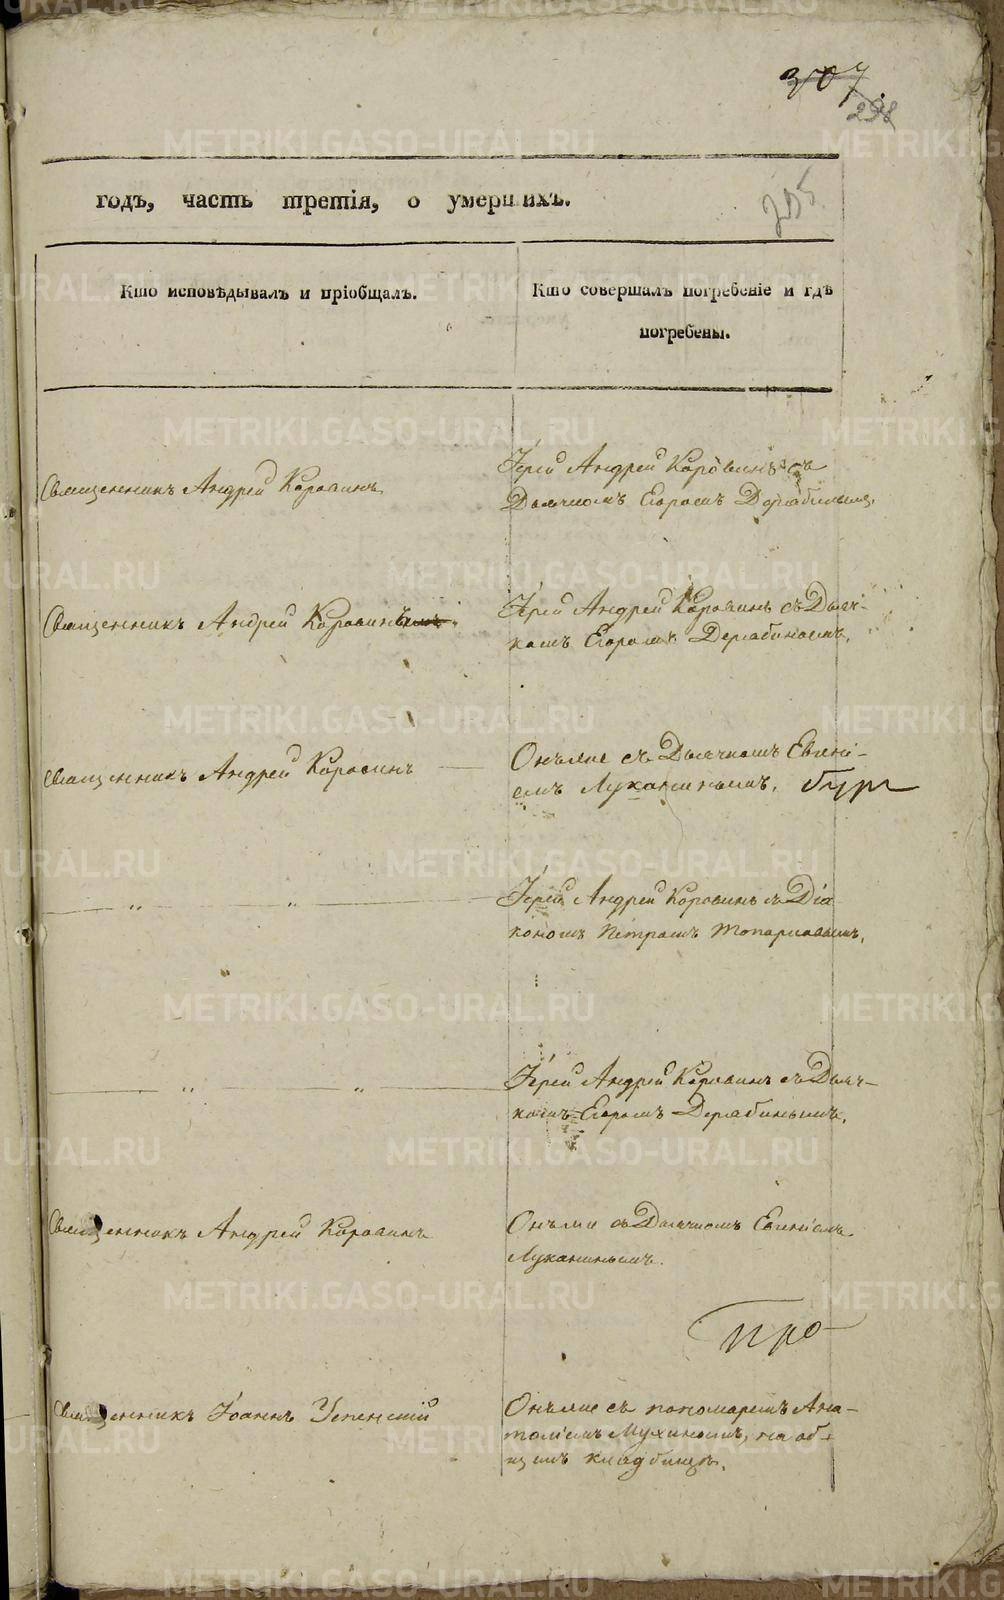 307
298
295
годъ, часть третія, о умершихъ.
Кто исповѣдывалъ и пріобщалъ.
Кто совершалъ погребеніе и гдѣ
погребены.
Священникъ Андрей Коровинъ
Іерей Андрей Коровинъ съ
Дьячкомъ Егоромъ Дерябинымъ.
Священникъ Андрей Коровинъ
Іерей Андрей Коровинъ съ Дьяч-
комъ Егоромъ Дерябиномъ.
Священникъ Андрей Коровинъ
Онъ же съ Дьячкомъ Евгені-
емъ Луканинымъ.
Іерей Андрей Коровинъ съ Діа-
кономъ Петромъ Топорковымъ.
Іерей Андрей Коровинъ съ Дьяч-
комъ Егоромъ Дерябинымъ.
Священникъ Андрей Коровинъ
Онъ же съ Дьячкомъ Евгеніемъ
Луканинымъ.
про
Священникъ Іоаннъ Успенскій
Онъ же съ пономаремъ Ана-
толіемъ Мухиномъ, на об-
щемъ кладбищѣ.
METRIKI.GASO-URAL.RU